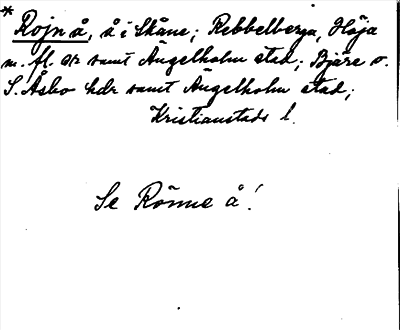 * Rojn å, å i Skåne; Rebbelberga, Höja
m. fl. snr samt Ängelholm stad; Bjäre o.
S. Åsbo hdr samt Ängelholm stad;
Kristianstads l.
Se Rönne å!